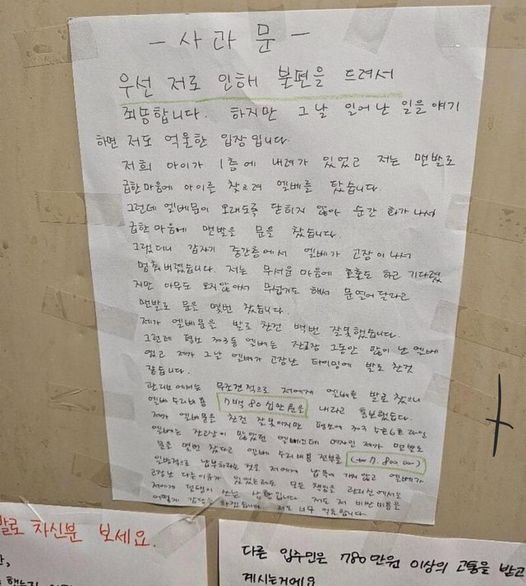 - 사 과 문 -
우선 저로 인해 불편을 드려서
죄송합니다. 하지만 그날 일어난 일을 얘기
하면 저도 억울한 입장 입니다.
저희 아이가 1층에 내려가 있었고 저는 맨발로
급한마음에 아이를 찾으려 엘베를 탔습니다.
그런데 엘베문이 오래도록 닫히지 않아 순간 화가 나서
급한 마음에 맨발로 문을 찼습니다.
그랬더니 갑자기 중간층에서 엘베가 고장이 나서
멈춰버렸습니다. 저는 무서운 마음에 호출도 하고 기다렸
지만 아무도 오지않아서 무섭기도 해서 문열어 달라고
맨발로 문을 몇번 찼습니다.
제가 엘베문을 발로 찬건 백번 잘못했습니다.
그런데 평소 저희동 엘베는 잔고장 그동안 많이 난 엘베
였고 제가 그날 엘베가 고장난 타이밍에 발로 찬것
같습니다.
관리소에서는 무조건적으로 저에게 엘베를 발로 찼으니
엘베 수리비용 7백 80 십만원을 내라고 통보했습니다.
제가 엘베문을 찬건 잘못이지만 평소에
엘베는 잔고장이 많았던 엘베인데 여자인 제가 맨발로
문을 몇번 찼다고 엘베 수리비용 전부를
일방적으로 납부하라는 것은 저에게 납득이 가지 않고 엘베가
고장난 다른 이유가 있었는데도 모든 책임을 관리실에서는
저에게 상황입니다 저도 저 비싼 비용을
어떻게 하며 저도 너무 억울합니다.
발로 차신분 보세요.
다른 입주민은 780만원 이상의 고통을 받고
계시는거에요